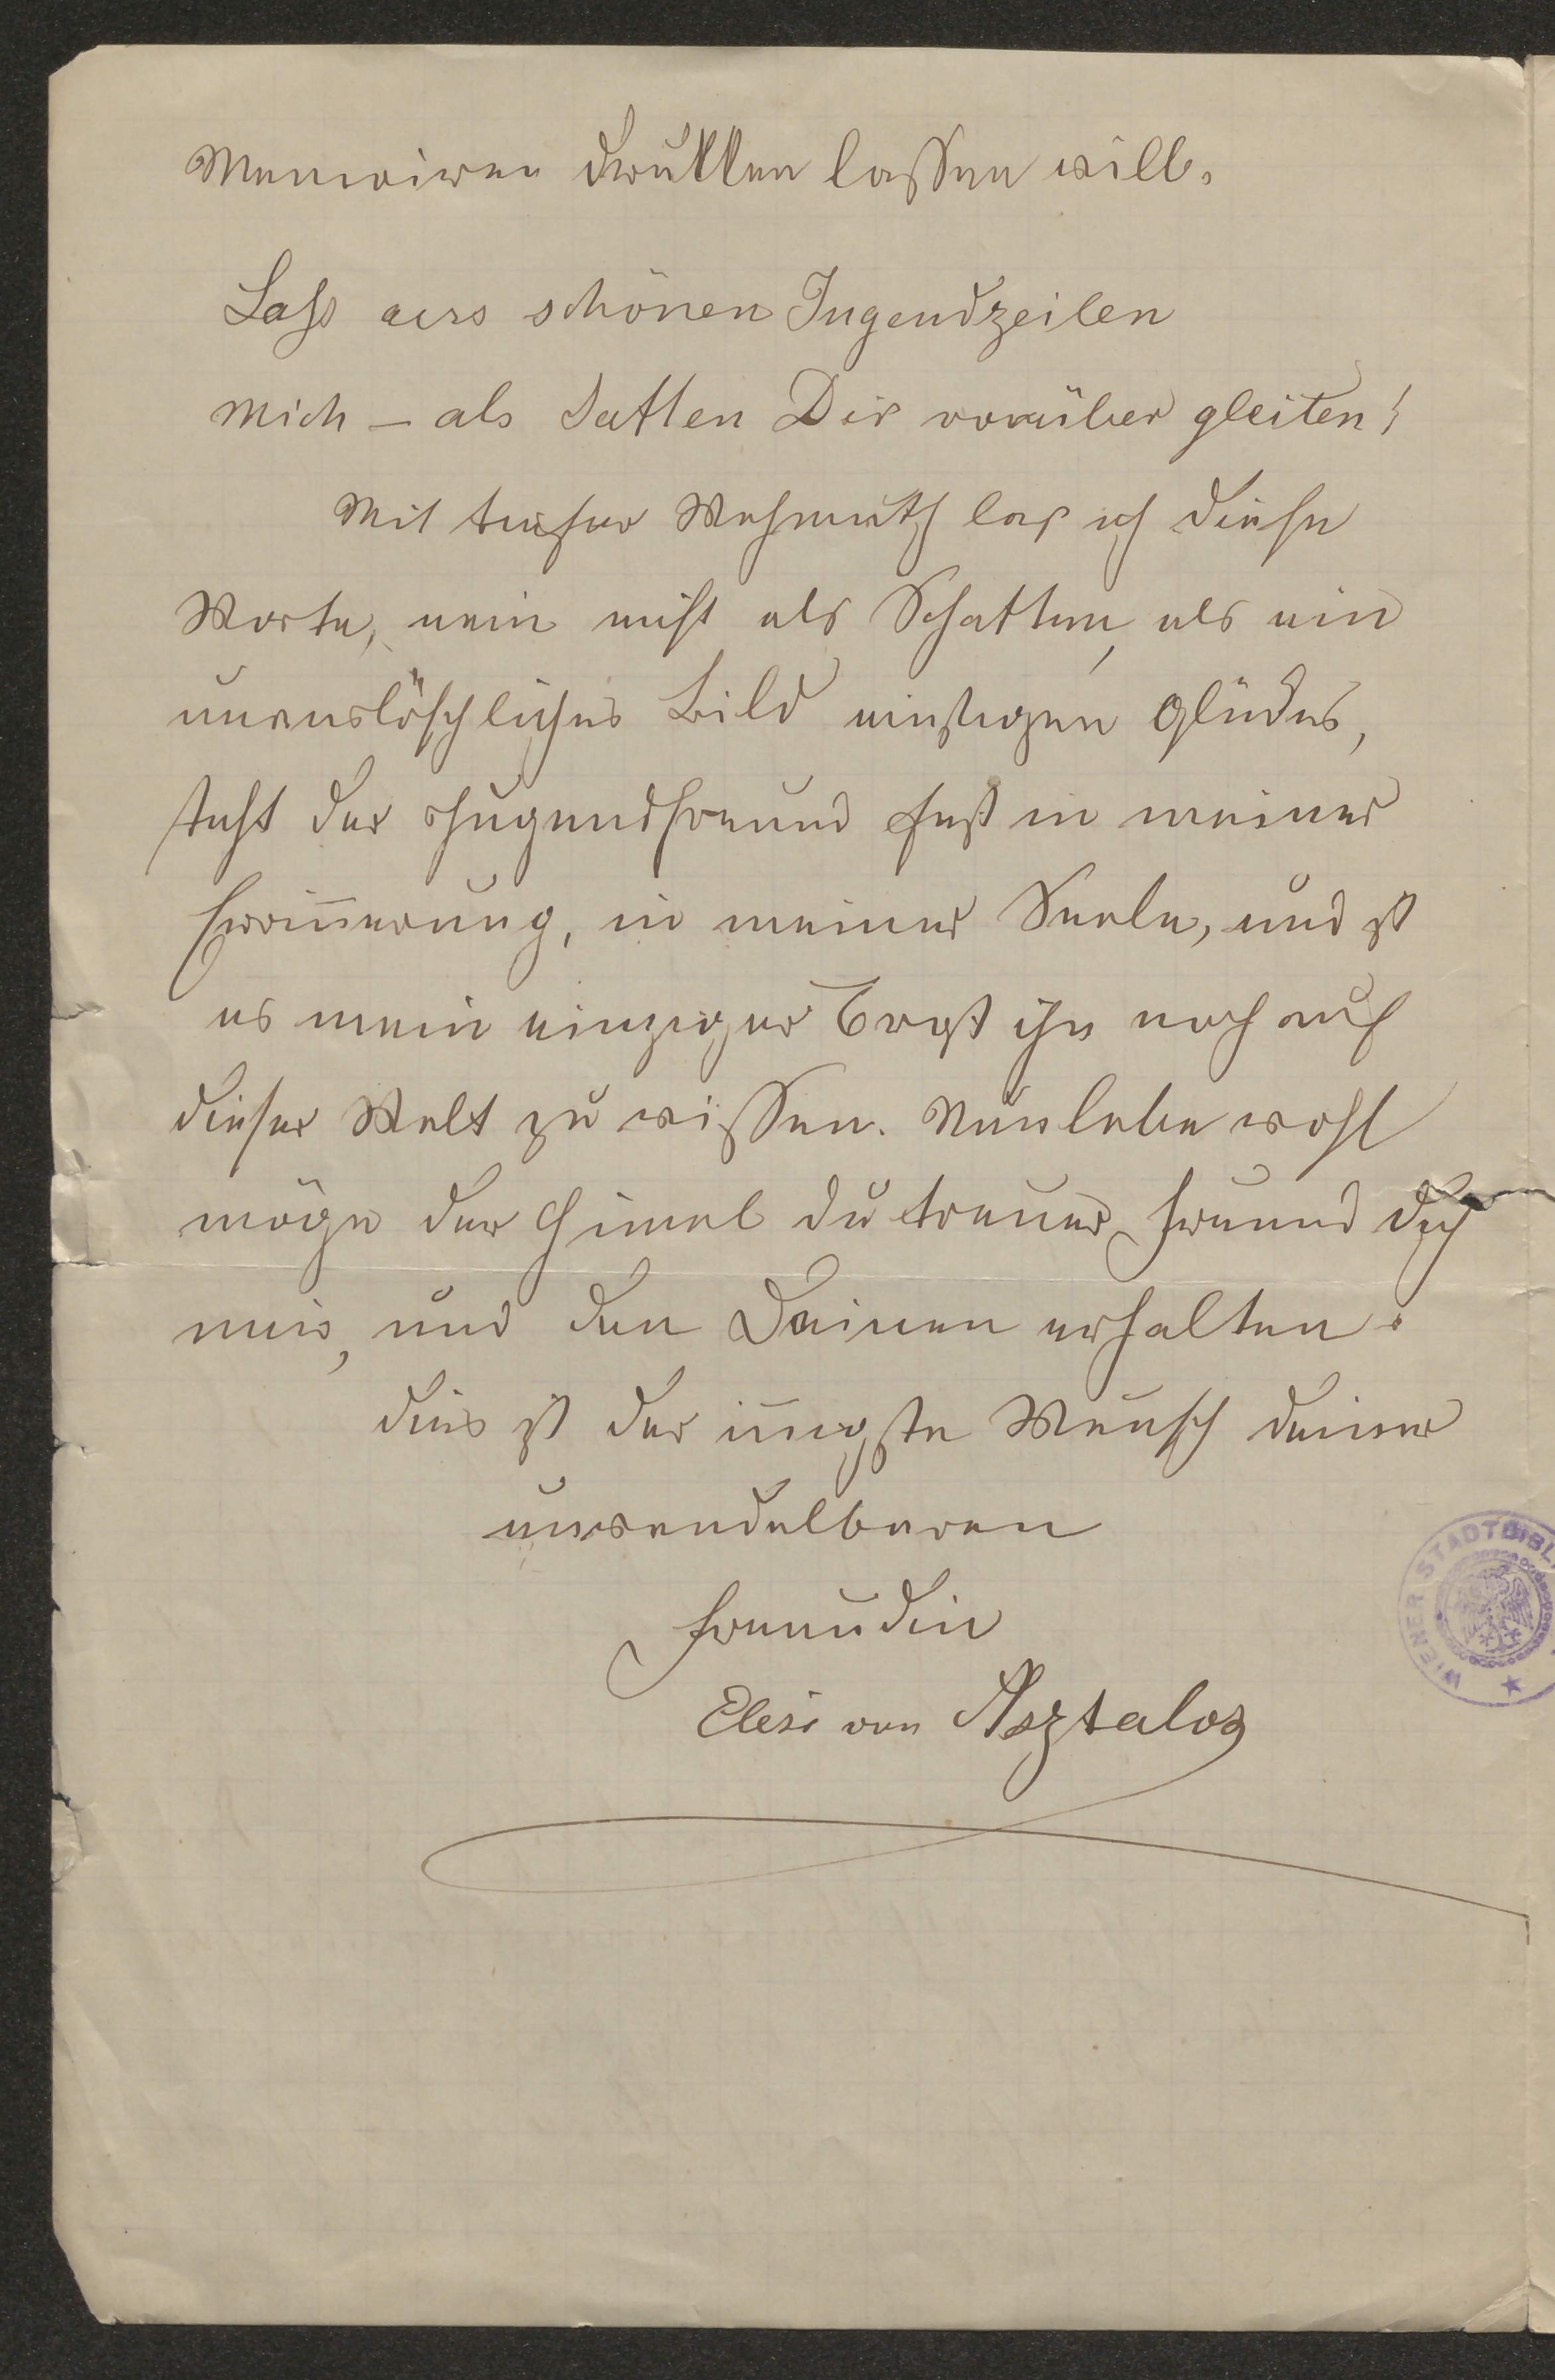 Memoiren drukken lassen will.
Lass aus schönen Jugendzeiten
mich – als Satten Dir vorüber gleiten!
Mit tiefer Wehmuth las ich diese
Worte, nein nicht als Schatten, als ein
unauslöschliches Bild einstigen Glückes,
steht der Jugendfreund fest in meiner
Erin̄erung, in meiner Seele, und ist
es mein einziger Trost ihn noch auf
dieser Welt zu wissen. Nun lebe wohl
möge der Himel du treuer Freund dich
mir, und den Deinen erhalten.
dies ist der in̄igste Wunsch deiner
unwandelbaren
Freundin
Elise von Asztalos
WIENER STADTBIBL